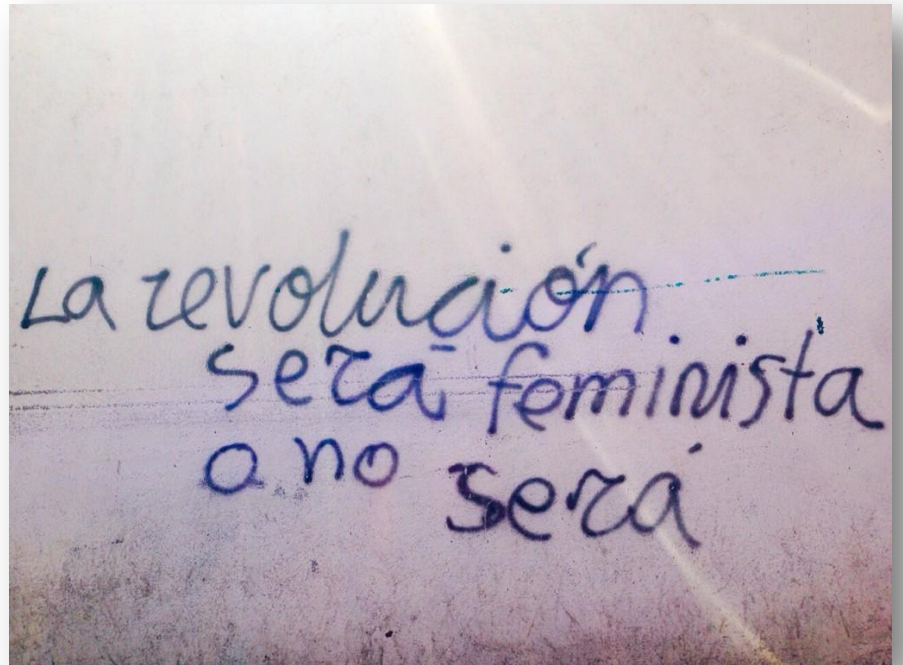 La revolución
será feminista
o no será